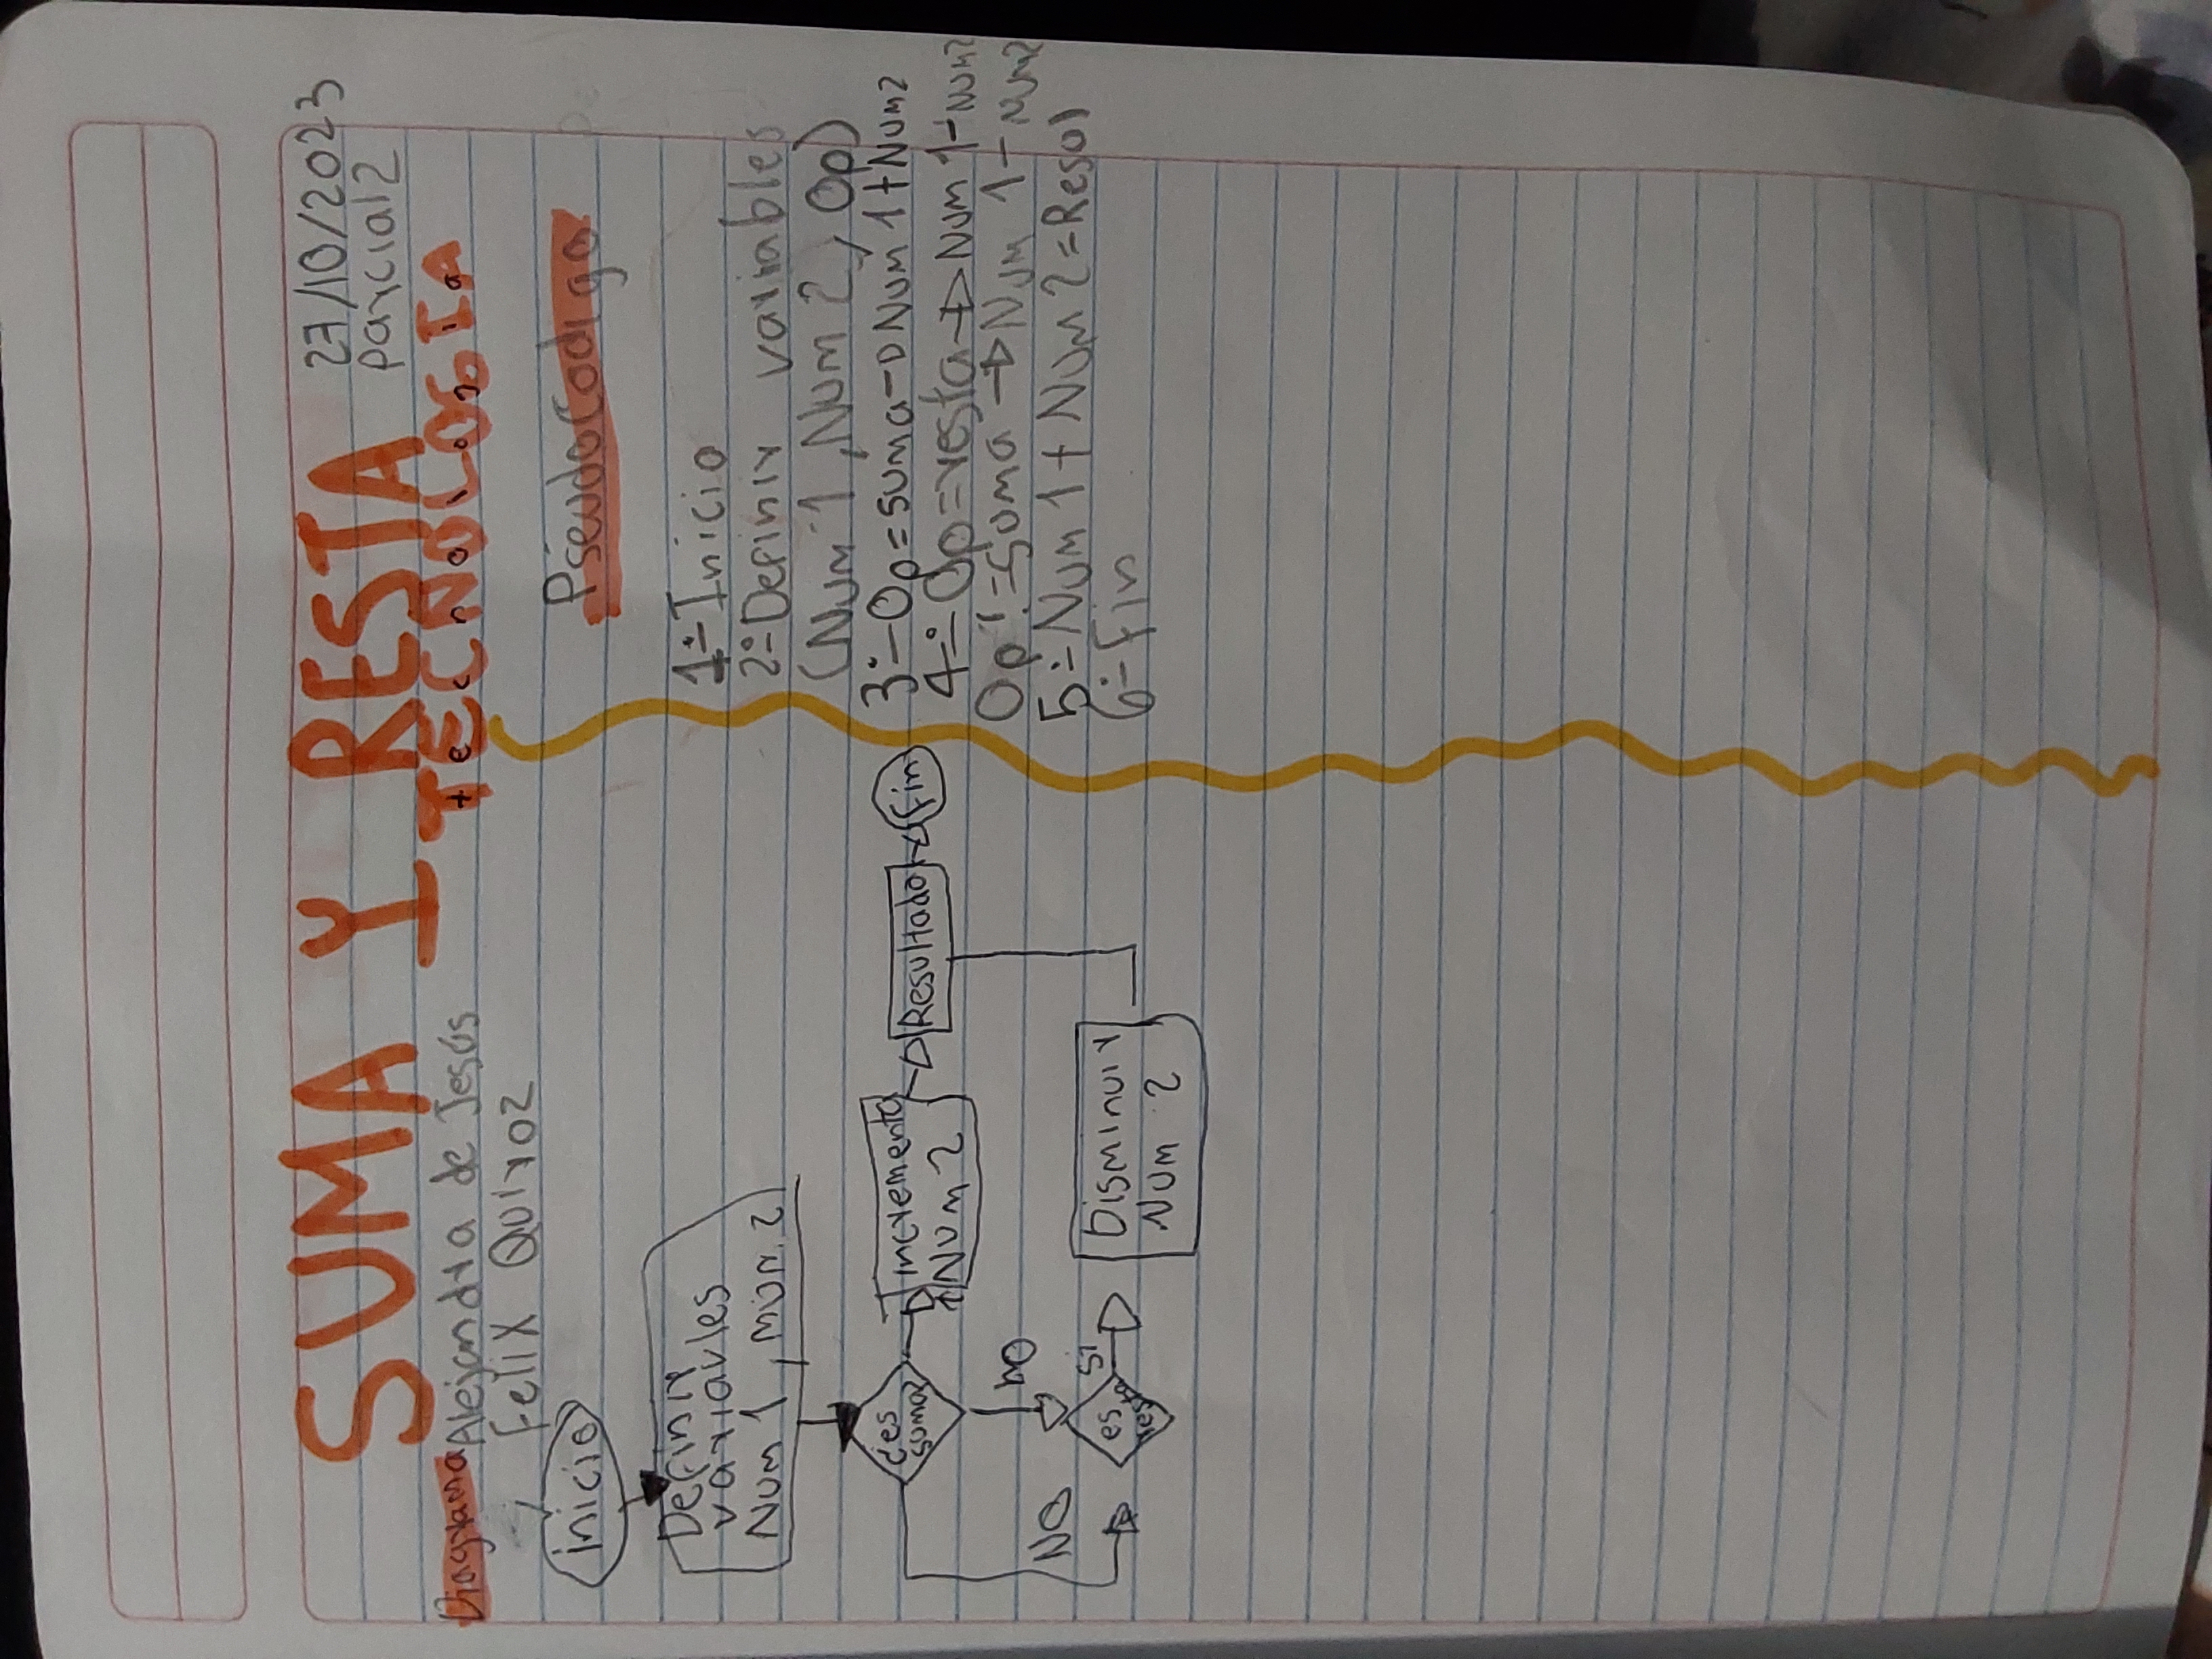 SUMA Y RESTA
27/10/2023
Parcial 2
I TECNOLOGIA
Diagrama
Alejandra de Jesús
Felix Quiroz
inicio
Definir
variavles
Num 1, mun. 2
¿es
suma?
incrementa
Num 2
Resultado
fin
NO
NO
es
resta
Si
Disminuir
Num 2
PseudoCodigo
1:-Inicio
2:-Definir variables
(Num 1, Num 2, Op)
3:-Op=suma→Num 1+Num2
4:-Op=resta→Num 1-Num2
Op!=suma→Num 1-Num2
5:-Num 1+Num 2=Resol
6:-Fin